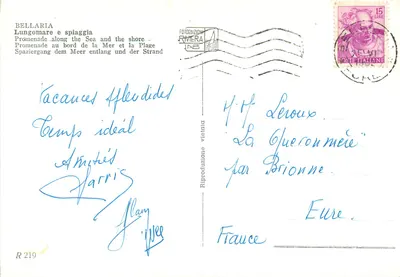 BELLARIA
Lungomare e spiaggia
Promenade along the Sea and the shore -
Promenade au bord de la Mer et la Plage
Spaziergang dem Meer entlang und der Strand
RIVIERA
15
Vacances splendides
Temps idéal
Amitiés
Alain
Riproduzione vietata
M. Leroux.
"La Queronnière"
par Brionne.
Eure.
France
R 219